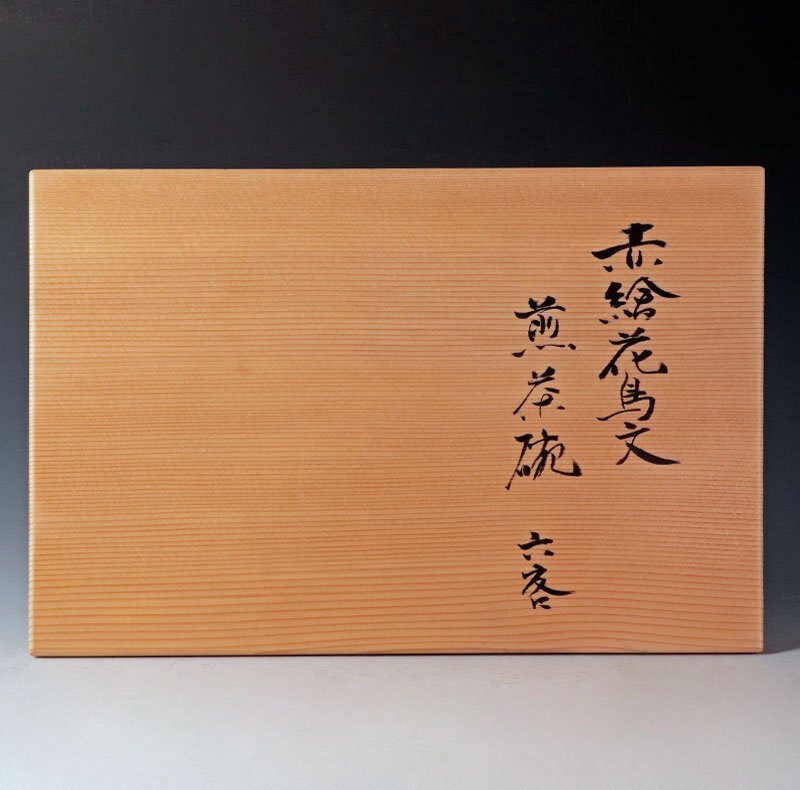 赤絵花鳥文
煎茶碗 六客